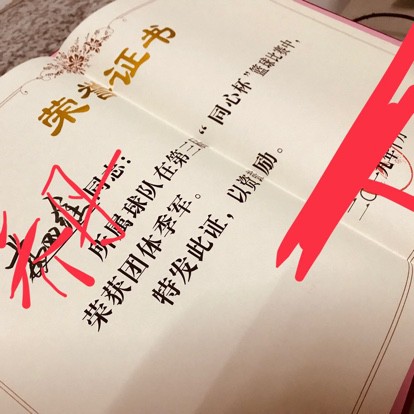 荣誉证书
同志:
所属球队在第三届“同心杯”篮球比赛中,
荣获团体季军。
特发此证,以资鼓励。
二〇一九年